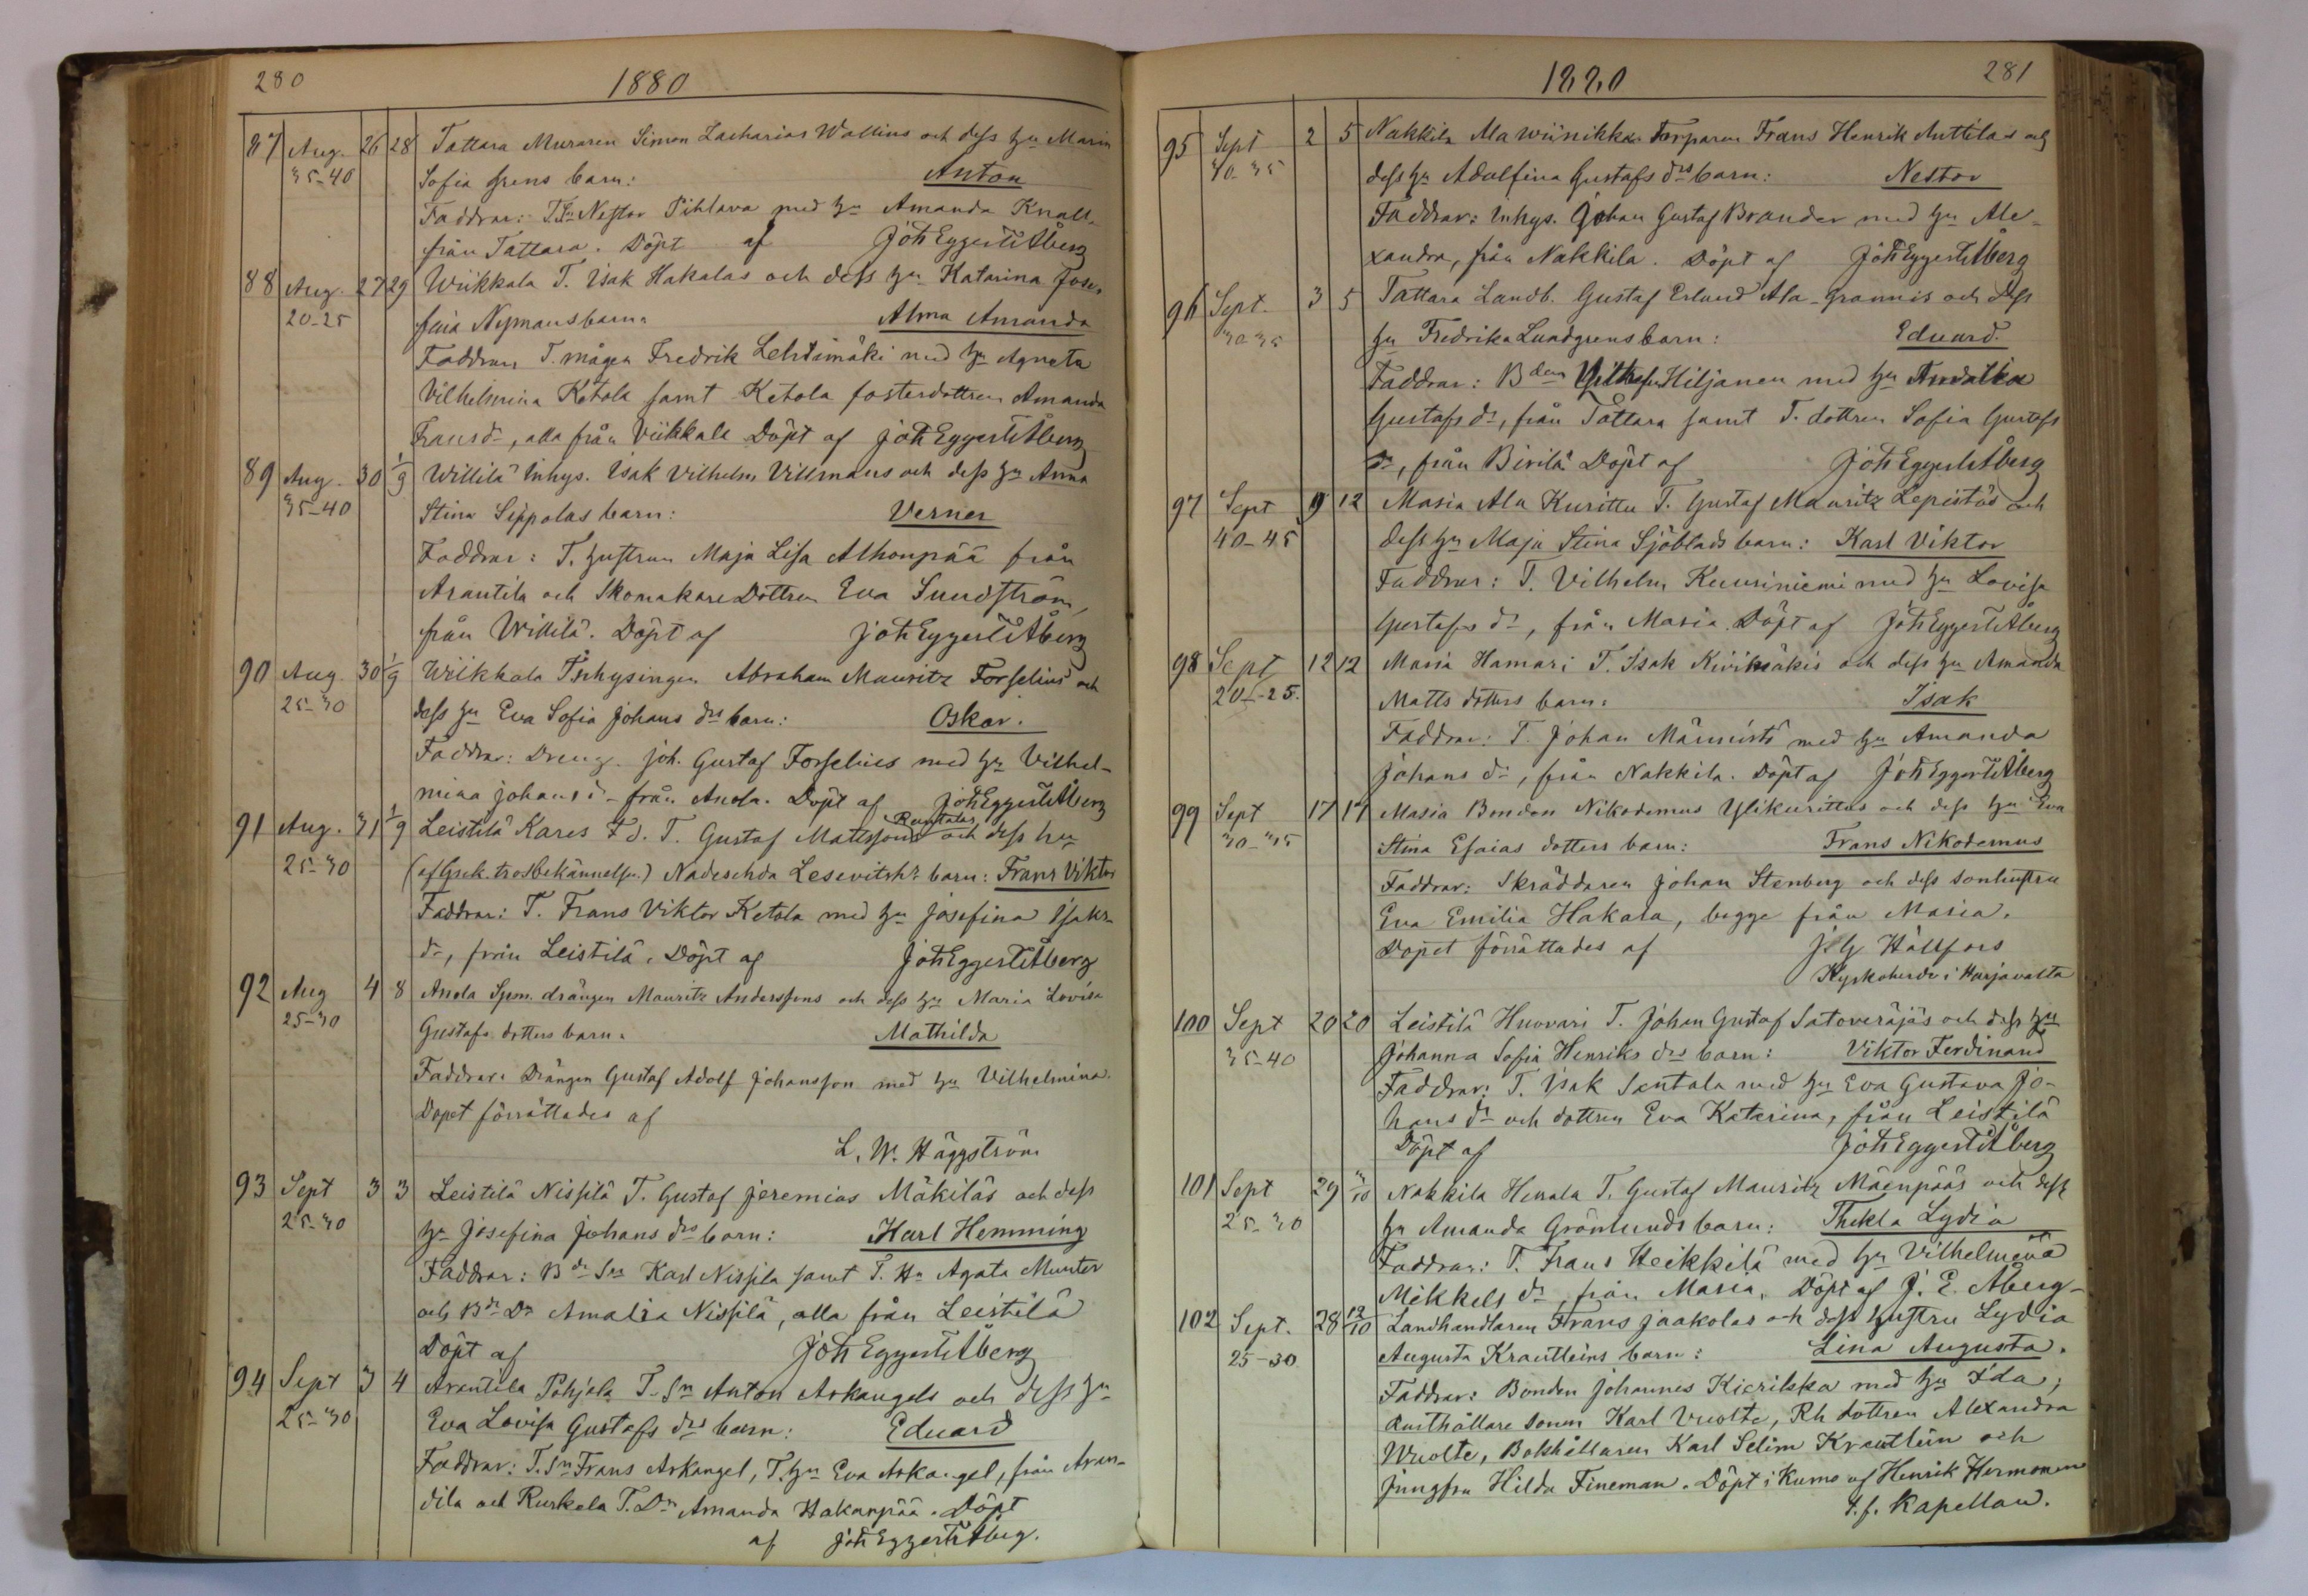 280 1880
87 Aug. 26 28 Tattara Muraren Simon Zacharias Wallins och dess hu Maria
35-40 Sofia barn: Anton
Faddrar: T.Sn Nestor Pihlava med hu Amanda
från Tattara. Döpt af Joh Eggert Åberg
88 Aug. 27 29 Wiikkala T. Isak Hakalas och dess hu Katarina Jose-
20-25 fina Nymans barn: Alma Amanda
Faddrar T. mågen Fredrik Lehtimäki med hu Agneta
Vilhelmina Ketola samt Ketola fosterdottren Amanda
Fransdr, alla från Viikkala Döpt af Joh Eggert Åberg
89 Aug. 30 1/9 Willilä Inhys. Isak Vilhelm Villmans och dess hu Anna
35-40 Stina Seppolas barn: Verner
Faddrar: T. hustrun Maja Lisa Alhonpää från
Arantila och Skomakare Dottren Eva Sundström,
från Willilä. Döpt af Joh Eggert Åberg
90 Aug. 30 1/9 Wiikkala Inhysingen Abraham Mauritz Forselius och
25-30 dess hu Eva Sofia Johans drs barn: Oskar.
Faddrar: Dreng. Joh. Gustaf Forselius med hu Vilhel-
mina Johans dr från Anola. Döpt af Joh Eggert Åberg
91 Aug. 31 1/9 Leistilä Kares F.d. T. Gustaf Mattssons och dess hu
25-30 (af Grek. trosbekännelsen) Nadeschda Lesevitsh's barn: Frans Viktor
Faddrar: T. Frans Viktor Ketola med hu Josefina Isaks-
dr, från Leistilä. Döpt af Joh Eggert Åberg
92 Aug 4 8 Anola Spm. drängen Mauritz Anderssons och dess hu Maria Lovisa
25-30 Gustafs dotters barn: Mathilda
Faddrar: Drängen Gustaf Adolf Johansson med hu Vilhelmina.
Dopet förrättades af
L. W. Häggström
93 Sept 3 3 Leistilä Nissilä T. Gustaf Jeremias Mäkiläs och dess
25-30 hu Josefina Johans drs barn: Karl Hemming
Faddrar: Bde Sn Karl Nissila samt T. Hu Agata Munter
och Bde Dr Amalia Nissilä, alla från Leistilä
Döpt af Joh Eggert Åberg
94 Sept 3 4 Arantila Pohjola T-Sn Anton Arkangels och dess hu
25-30 Eva Lovisa Gustafs drs barn: Eduard
Faddrar: T. Sn Frans Arkangel, T. hu Eva Arkangel, från Aran-
dila och Ruskela T. Dr Amanda Hakanpää. Döpt
af Joh Eggert Åberg.
1880 281
95 Sept 2 5 Nakkila Ala Wiinikka Torparen Frans Henrik Anttilas och
30-35 dess hu Adolfina Gustafs drs barn: Nestor
Faddrar: Inhys. Johan Gustaf Brander med hu Ale-
xandra, från Nakkila. Döpt af Joh Eggert Åberg
96 Sept. 3 5 Tattara Landb. Gustaf Erlund Ala-Grannis och dess
30-35 hu Fredrika Lundgrens barn: Eduard.
Faddrar: Bden Hiljanen med hu
Gustafs dr, från Tattara samt T. dottren Sofia Gustafs
dr, från Birilä Döpt af Joh Eggert Åberg
97 Sept 9 12 Masia Ala Kurittu T. Gustaf Mauritz Lepistös och
40-45 dess hu Maja Stina Sjöblads barn: Karl Viktor
Faddrar: T. Vilhelm Kuusiniemi med hu Lovisa
Gustafs dr, från Masia. Döpt af Joh Eggert Åberg
98 Sept 12 12 Masia Hamari T. Isak Kivimäkis och dess hu Amanda
20-25. Matts dotters barn: Isak
Faddrar: T. Johan Männistö med hu Amanda
Johans dr, från Nakkila. Döpt af Joh Eggert Åberg
99 Sept 17 17 Masia Bonden Nikodemus Ylikurittus och dess hu Eva
30-35 Stina Esaias dotters barn: Frans Nikodemus
Faddrar: Skräddaren Johan Stenberg och dess sonhustru
Eva Emilia Hakala, begge från Masia.
Dopet förrättades af J. G Hällfors
Kyrkoherde i Harjavalta
100 Sept 20 20 Leistilä Huovari T. Johan Gustaf Satoveräjäs och dess hu
35-40 Johanna Sofia Henriks drs barn: Viktor Ferdinand
Faddrar: T. Isak Santala med hu Eva Gustava Jo-
hans dr och dottren Eva Katarina, från Leistilä
Döpt af Joh Eggert Åberg
101 Sept 29 3/10 Nakkila Heurala T. Gustaf Mauritz Mäenpääs och dess
25-30 hu Amanda Grönlunds barn: Thekla Lydia
Faddrar: T. Frans Heikkilä med hu Vilhelmina
Mikkels dr, från Masia. Döpt af J. E. Åberg
102 Sept. 28 12/10 Landhandlaren Frans Jaakolas och dess hustru Lydia
25-30 Augusta Krautleins barn: Lina Augusta.
Faddrar: Bonden Johannes Kierikka med hu Ida;
Rusthållare sonen Karl Vuolte, Rh dottren Alexandra
Wuolte, Bokhållaren Karl Selim Krautlein och
Jungfru Hilda Fineman. Döpt i Kumo af Henrik Hermonen
t.f. Kapellan.